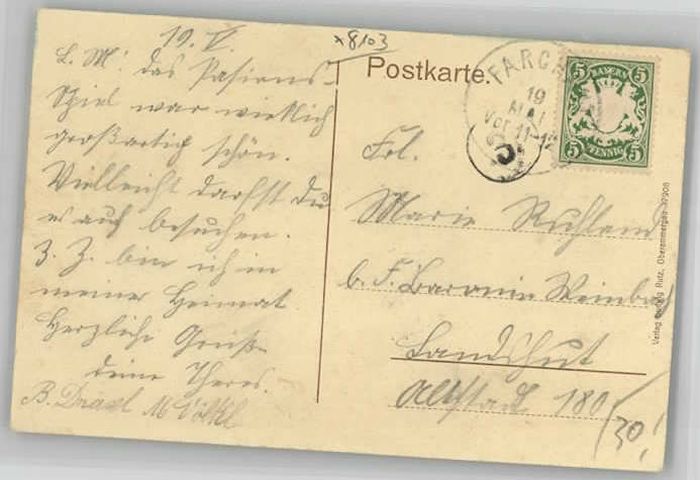 19. V.
x8103
L. M! Das Pasions-
Spiel war wirklich
großartig schön.
Vielleicht darfst Du
es auch besuchen.
Z. Z. bin ich in
meiner Heimat
Herzliche Grüße
deine Theres.
B. Draxl M Völkl
Postkarte.
FARCH
19
MAI
Vor 11-12
5 BAYERN 5
5 PFENNIG 5
Frl.
Marie Ruhland
b. F. Baronin Weinbach
Landshut
Altstadt 180
(30!
Verlag Rutz, Oberammergau